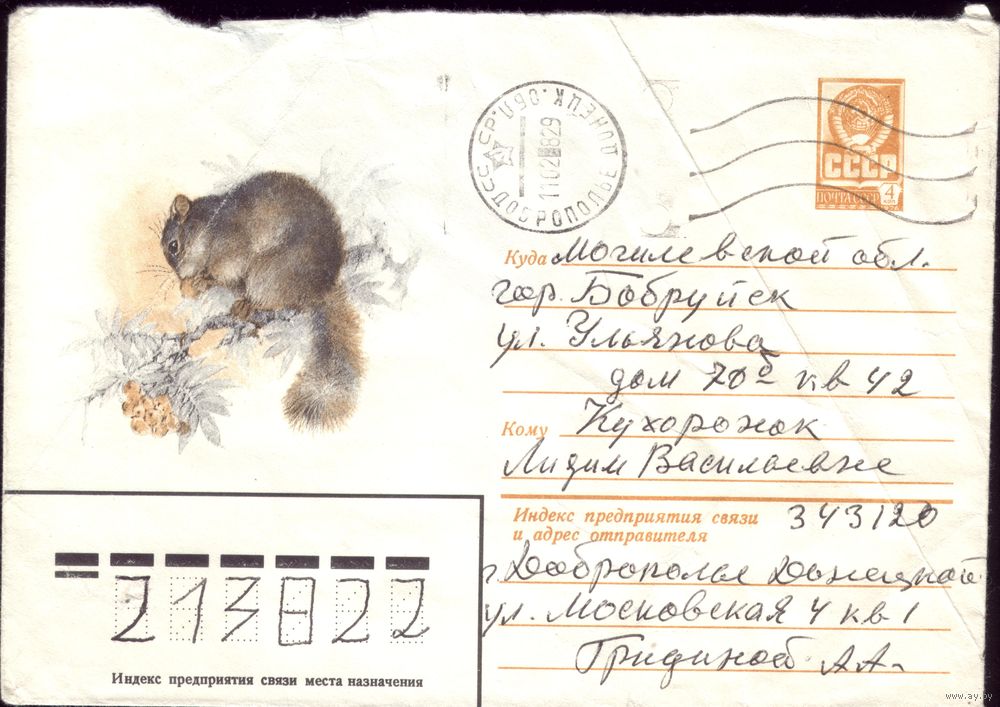 УССР. ДОНЕЦК. ОБЛ.
ДОБРОПОЛЬЕ
1102 829
СССР
ПОЧТА СССР
4
КОП
Куда Могилевской обл.
гор. Бобруйск
ул. Ульянова
дом 70б кв 42
Кому Кухоронок
Лидии Васильевне
Индекс предприятия связи
и адрес отправителя
343120
г. Доброполье Донецкой
ул. Московская 4 кв 1
Гридиной А А.
213822
Индекс предприятия связи места назначения
www.ay.by